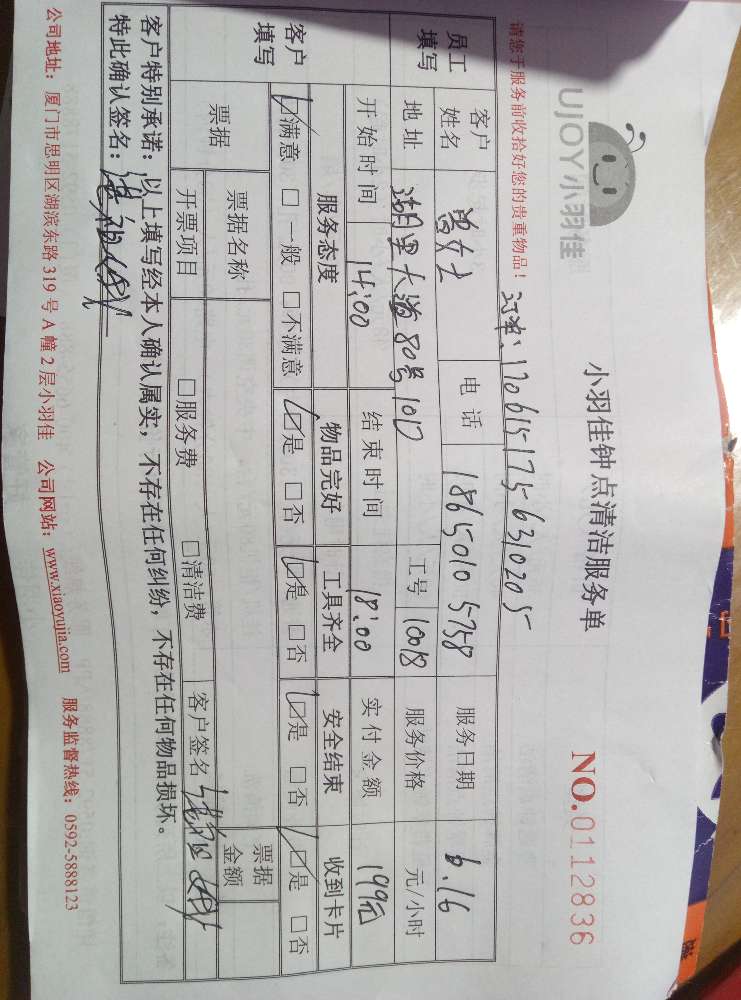 UJOY小羽佳
小羽佳钟点清洁服务单
NO.0112836
请您于服务前收拾好您的贵重物品!
订单:1706151756310205
员工填写
客户姓名 女士 电话 18650105758 服务日期 6.16
地址 湖里大道80号101D 工号 10018 服务价格 元/小时
开始时间 14:00 结束时间 18:00 实付金额 199元
客户填写
服务态度 物品完好 工具齐全 安全结束 收到卡片
☑满意 □一般 □不满意 ☑是 □否 ☑是 □否 ☑是 □否 ☑是 □否
票据 票据名称 票据金额
开票项目 □服务费 □清洁费 客户签名
客户特别承诺:以上填写经本人确认属实,不存在任何纠纷,不存在任何物品损坏。
特此确认签名:
公司地址:厦门市思明区湖滨东路319号A幢2层小羽佳 公司网站:www.xiaoyujia.com 服务监督热线:0592-5888123